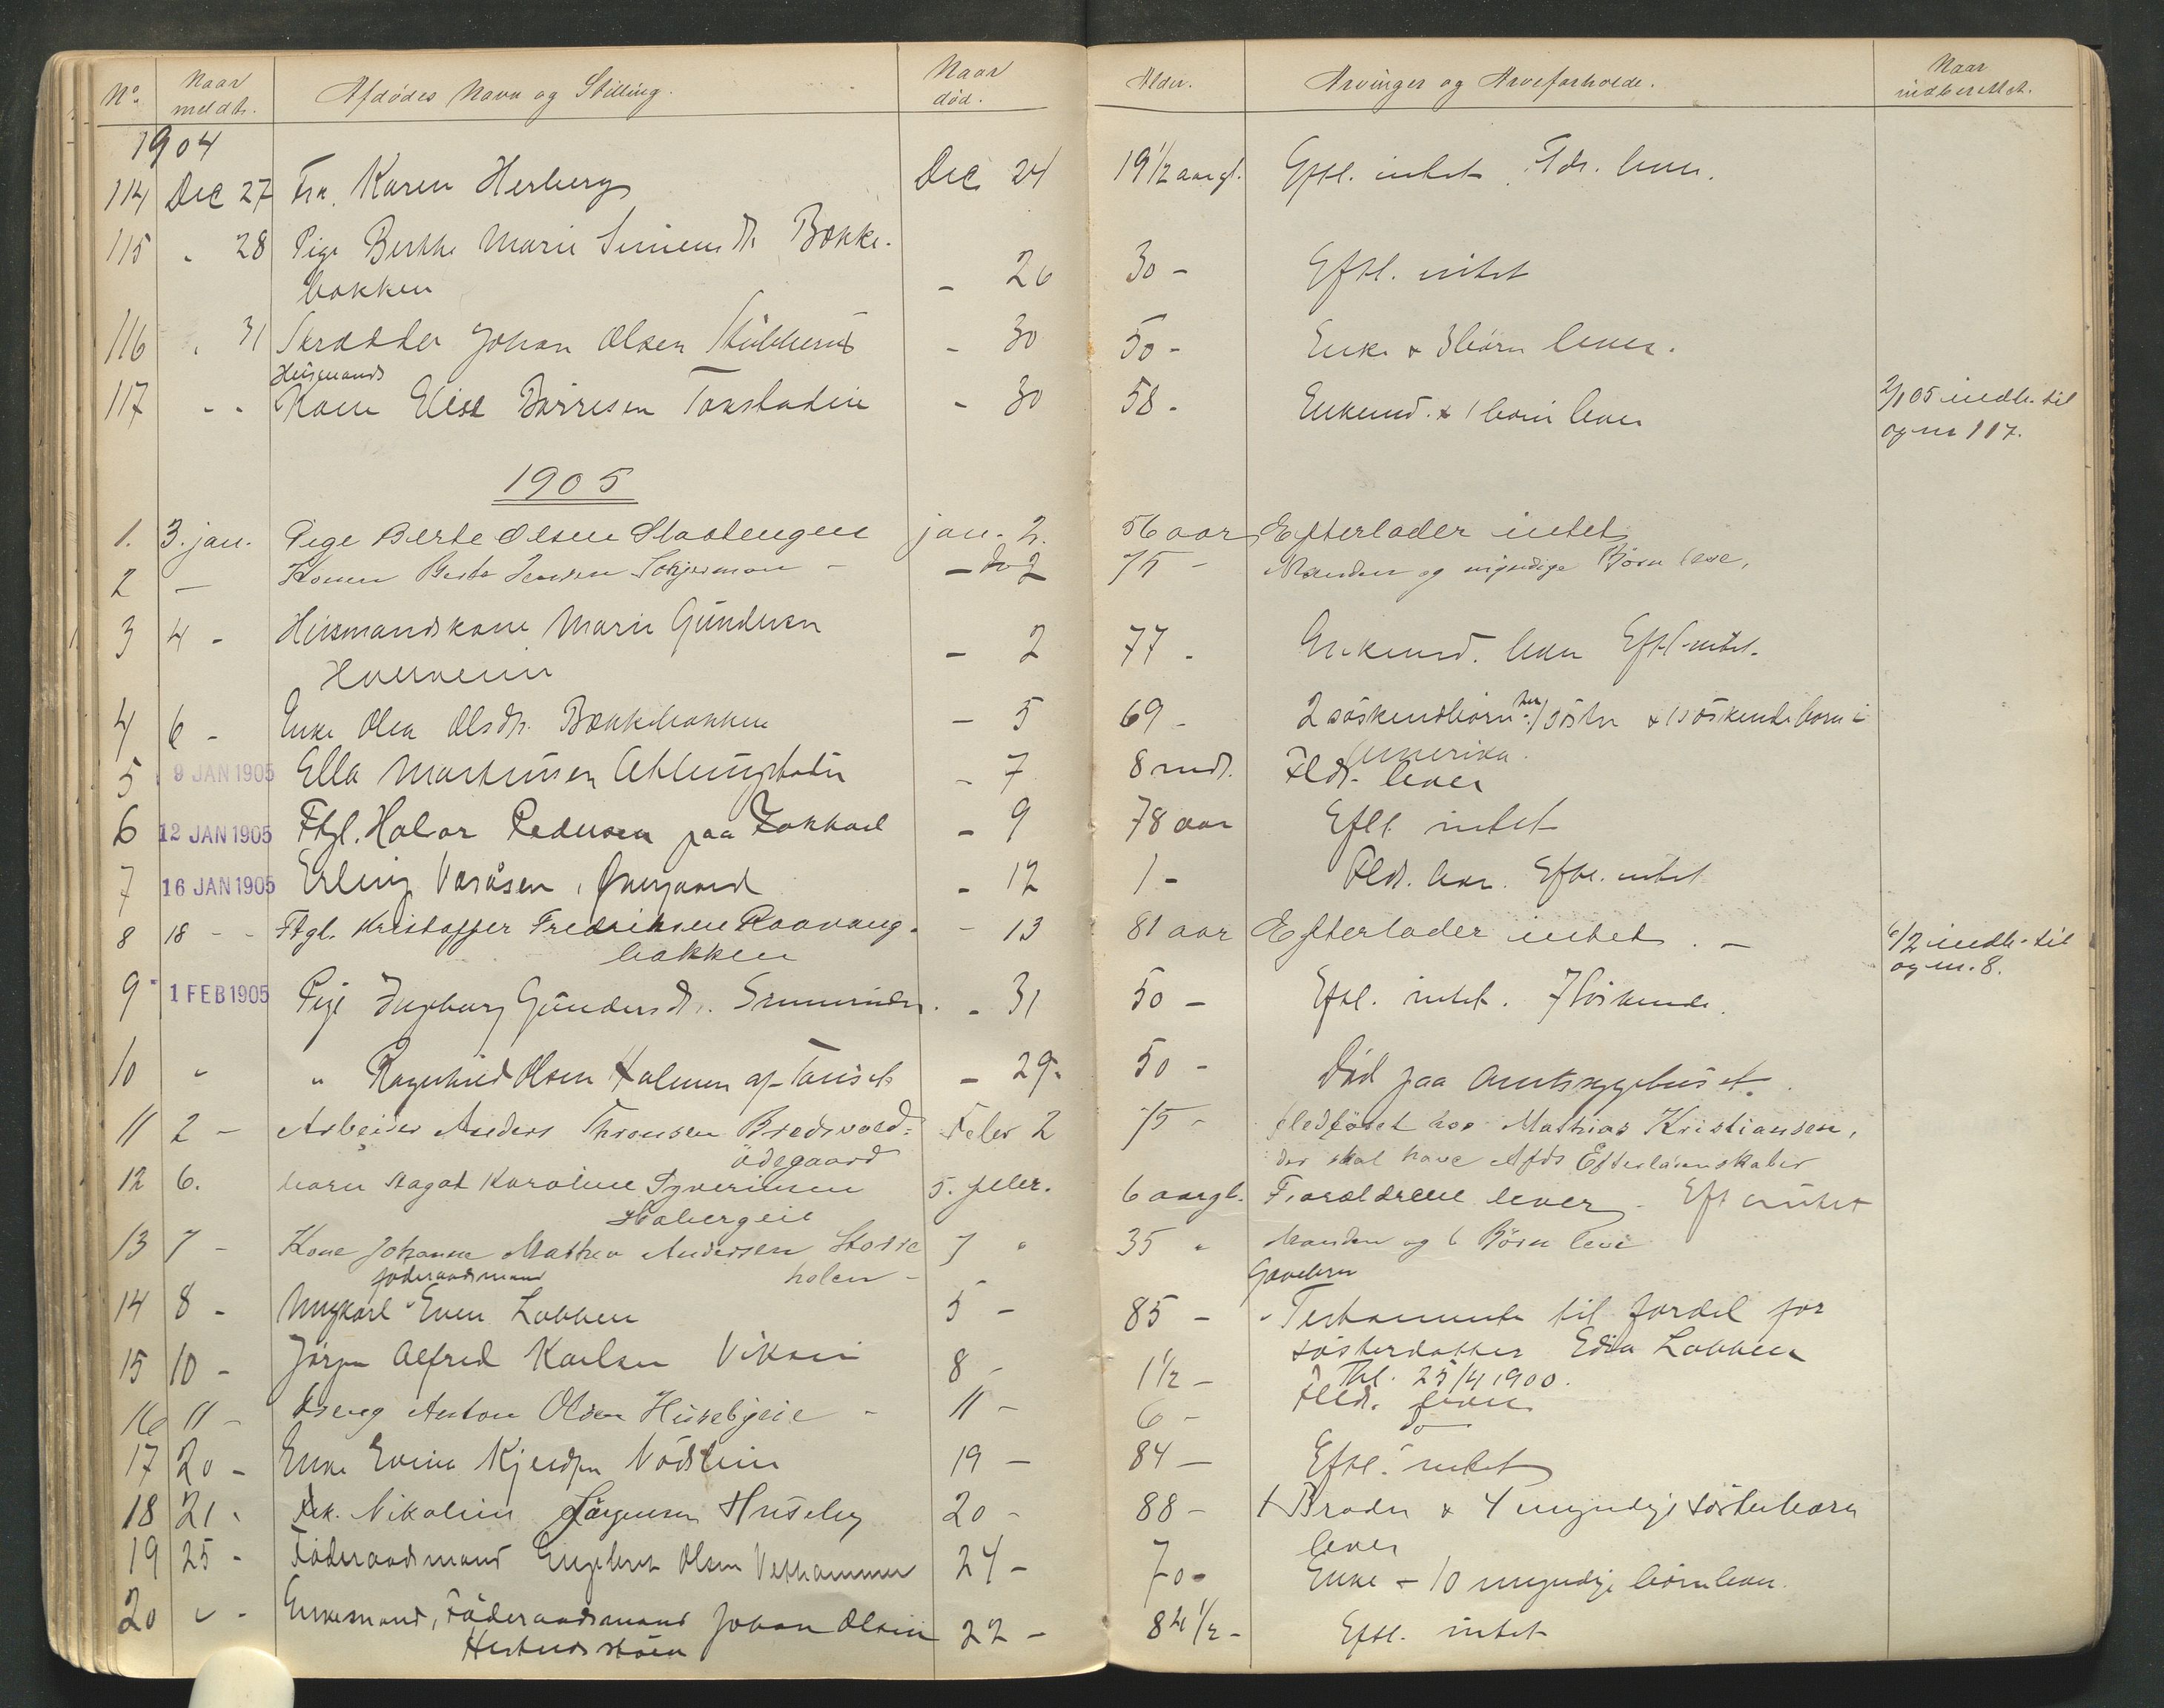 No. Naar meldt. Afdødes Navn og Stilling. Naar død. Alder. Arvinger og Arveforholde. Naar indberettet.
1904
114 Dec 27 Frk. Karen Herberg Dec 24 19 1/2 aar gl. Eftl. intet Fdr. lever.
115 " 28 Pige Berthe Marie Simensdt. Bække-
bakken - 26 30 - Eftl. intet
116 " 31 Skrædder Johan Olsen Stubberud - 30 50 - Enke & 3 børn lever.
Husmands
117 " " Kone Elise Børresen Tonstadeie - 30 58 - Enkemd. & 1 barn lever 2/1 05 indb. til
og m 117.
1905
1. 3. jan. Pige Berte Olsen Stastengen jan. 2. 56 aar Efterlader intet
2 - Konen Berte Jensen - do 2 75 - Manden og myndige Børn leve,
3 4 - Husmandskone Marie Gundersen
Hvervenin - 2 77 - Enkemd. lever Eftl. intet.
4 6 - Enke Olea Olsdt. Bækkebakken - 5 69 - 2 søskendbørn her, 1 søster & 1 søskendebarn i
Amerika.
5 9 JAN 1905 Ella Martinsen - 7 8 mdr. Fldr. lever
6 12 JAN 1905 Ftgl. Halvor Pedersen paa - 9 78 aar Eftl. intet
7 16 JAN 1905 Erling Vasåsen, - 12 1 - Fldr. lever. Eftl. intet
8 18 - - Ftgl. Kristoffer Fredriksen Raavang-
bakken - 13 81 aar Efterlader intet. - 6/2 indb. til
og m. 8.
9 1 FEB 1905 Pige Ingeborg Gundersdt. - 31 50 - Eftl. intet. 7 søskende.
10 " " Ragnhild Olsen Holmen af - 29. 50 - Død paa Amtssygehuset.
11 2 - Arbeider Anders Thronsen Bredvold-
ødegaard Febr 2 75 - fledføret hos Mathias Kristiansen,
der skal have Afds Efterladenskaber
12 6. barn Aagot Karoline Syverinsen
Habergeie 5. febr. 6 aar gl. Forældrene lever. Eft intet
13 7 - Kone Johanne Mathea Andersen Storre
holen - 7 " 35 " Manden og 6 Børn leve
føderaadsmand Gavebrev
14 8 - Ungkarl Even Lobben 5 - 85 - Testamente til fordel for
søsterdatter Edia Lobben
Thl. 25/4 1900.
15 10 - Jørgen Alfred Karlsen Viken 8 - 1 1/2 - Fldr. lever
16 11 - Dreng Anton Olsen Husebyeie - 11 - 6 - do
17 20 - Enke Evine 19 - 84 - Eftl. intet
18 21 " Frk. Nikoline Jørgensen Huseby 20 - 88 - 1 Broder & 4 myndige søsterbørn
lever
19 25 - Føderaadsmand Engebret Olsen Vethammer 24 - 70 - Enke + 10 myndige børn lever.
20 " - Enkemand, Føderaadsmand Johan Olsen
22 - 84 1/2 - Eftl. intet